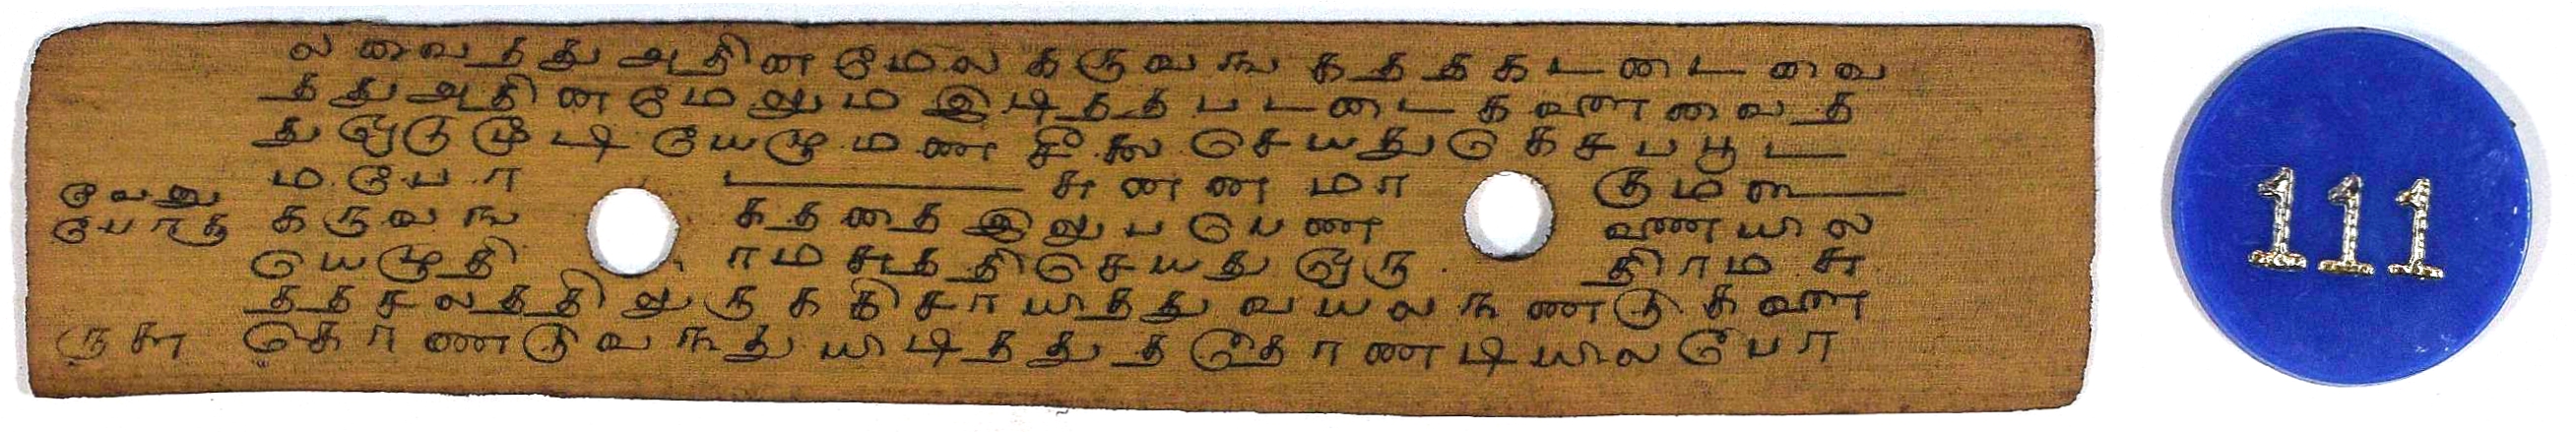 ல வைத்து அதின மேல கருவங கததகடடைடவை
தது அதின மேலும இடித்த படடைகளை வைத
து ஒடு மூடி யேழு மண சீலை செயது கெசபபூட
மபோ சுணண மா கும
வேறு
போகு கருவங கததை இலுபபெண ணையில
யெழுதி ராம சுததி செயது ஒரு திராம சு
தத சலததிலுருககி சாயிதது வயல நணடுகளை
ருசு கொணடு வநது யிடிதது த தோணடியில போ
111